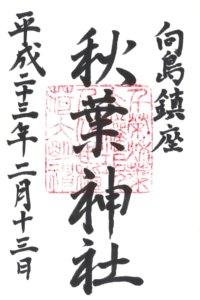 向島鎮座
秋葉神社
平成二十三年二月十三日